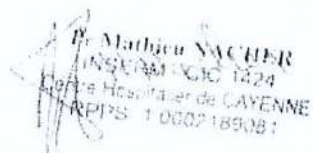 Pr Mathieu NACHER
INSERM CIC 1424
Centre Hospitalier de CAYENNE
RPPS 10002189081